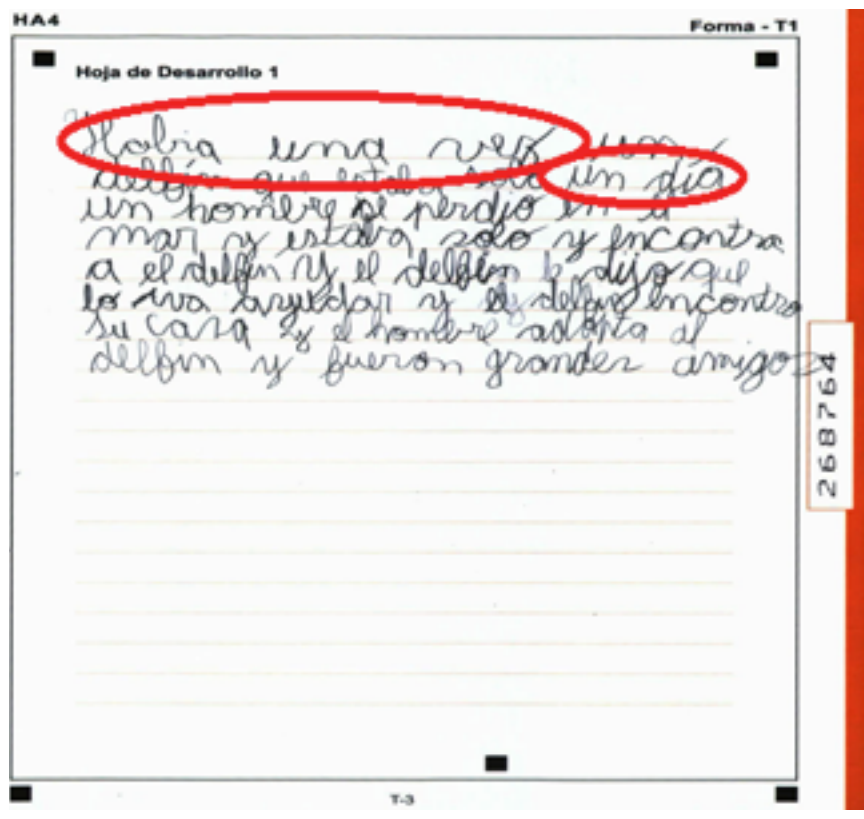 HA4
Forma - T1
Hoja de Desarrollo 1
Habia una vez un
delfín que estaba solo un día
un hombre se perdio en el
mar y estaba solo y encontra
a el delfin y el delfin le dijo que
lo iva ayudar y el delfin encontro
su casa y el hombre adopta al
delfin y fueron grandes amigos
268764
T-3